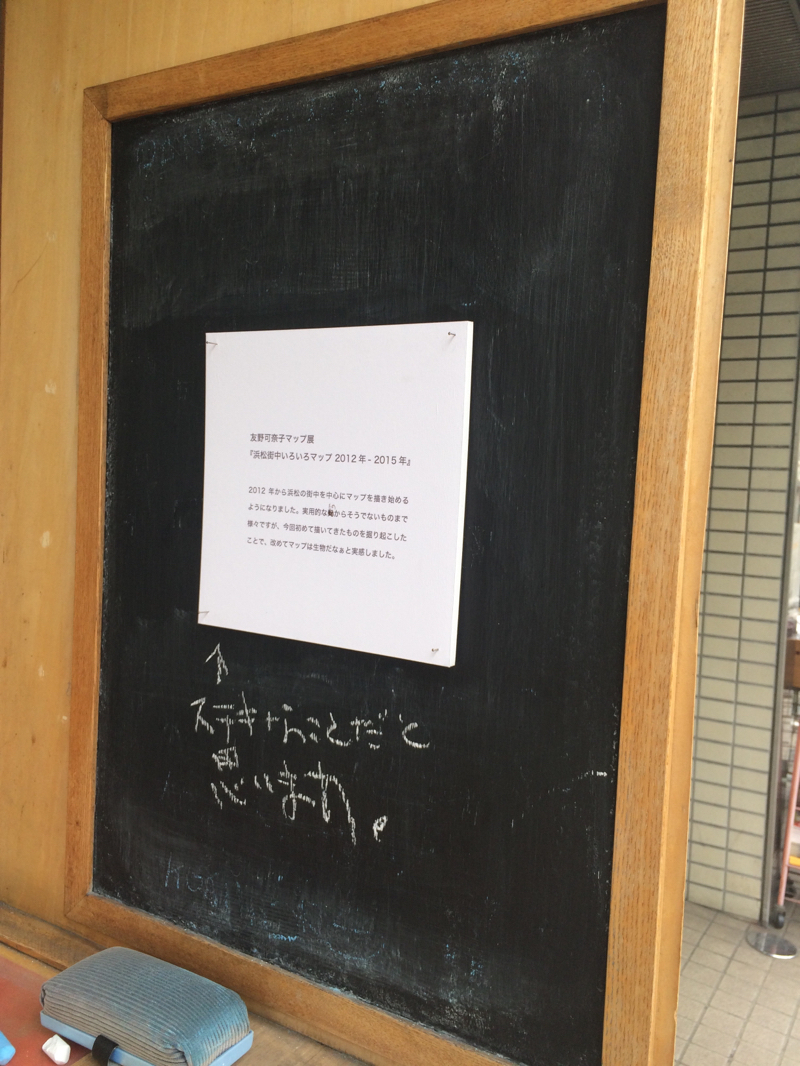 友野可奈子マップ展
『浜松街中いろいろマップ 2012 年 - 2015 年』
2012 年から浜松の街中を中心にマップを描き始める
ようになりました。実用的なものからそうでないものまで
様々ですが、今回初めて描いてきたものを掘り起こした
ことで、改めてマップは生物だなぁと実感しました。
↑
ステキなことだと
思います。